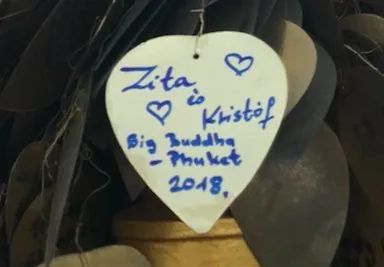 Zita
is
Kristóf
Big Buddha
- Phuket
2018.